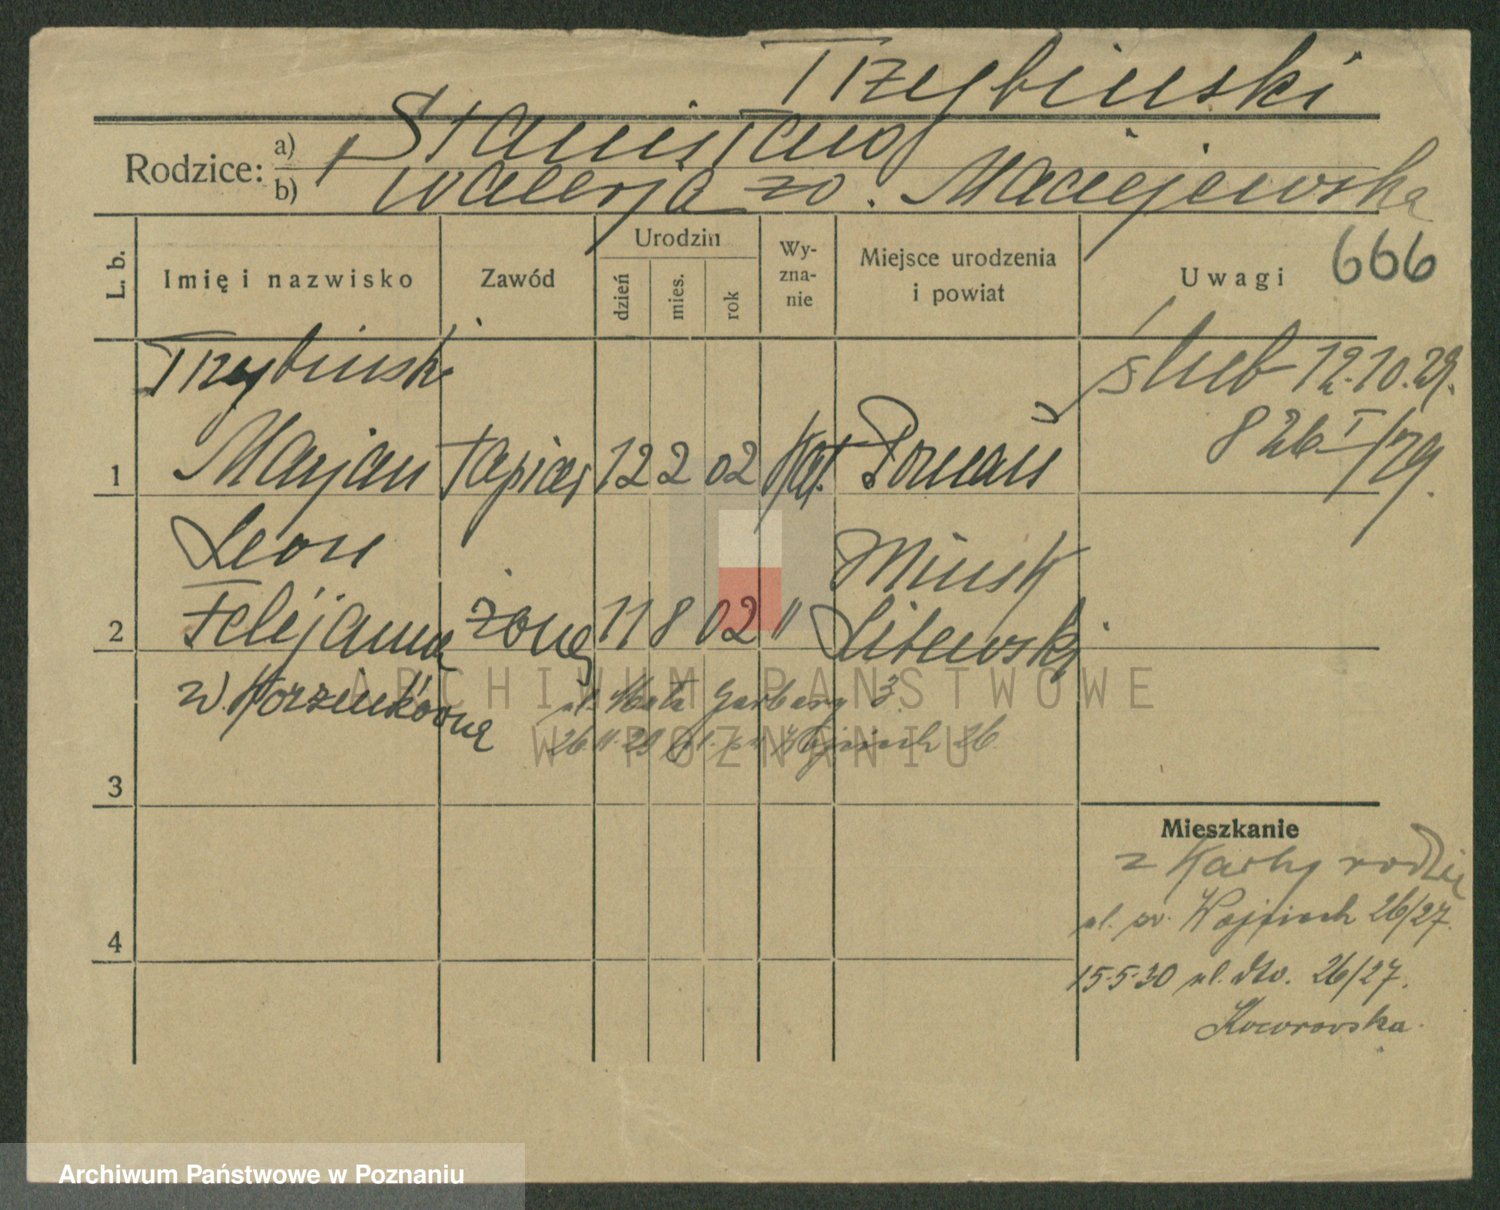 Trzybinski
Rodzice: a) Stanisław
b) Walerja zo. Maciejewska
666
L. b.
Imię i nazwisko
Zawód
Urodzin
dzień
mies.
rok
Wy-
zna-
nie
Miejsce urodzenia
i powiat
Uwagi
Trzybinski
ślub 12.10.29.
826 I/29.
1 Marjan tapicer 12 2 02 kat. Poznań
Leon Minsk
2 Felicjanna żona 11 8 02 " Litewski
z. Korzeników
ul. Mała Garbary 3.
26 11 29 ul. św. Wojciech 26
3
Mieszkanie
z Karty rodzic
ul. św. Wojciech 26/27.
4
15.5.30 ul. dto. 26/27.
Kocorowska.
ARCHIWUM PAŃSTWOWE
W POZNANIU
Archiwum Państwowe w Poznaniu